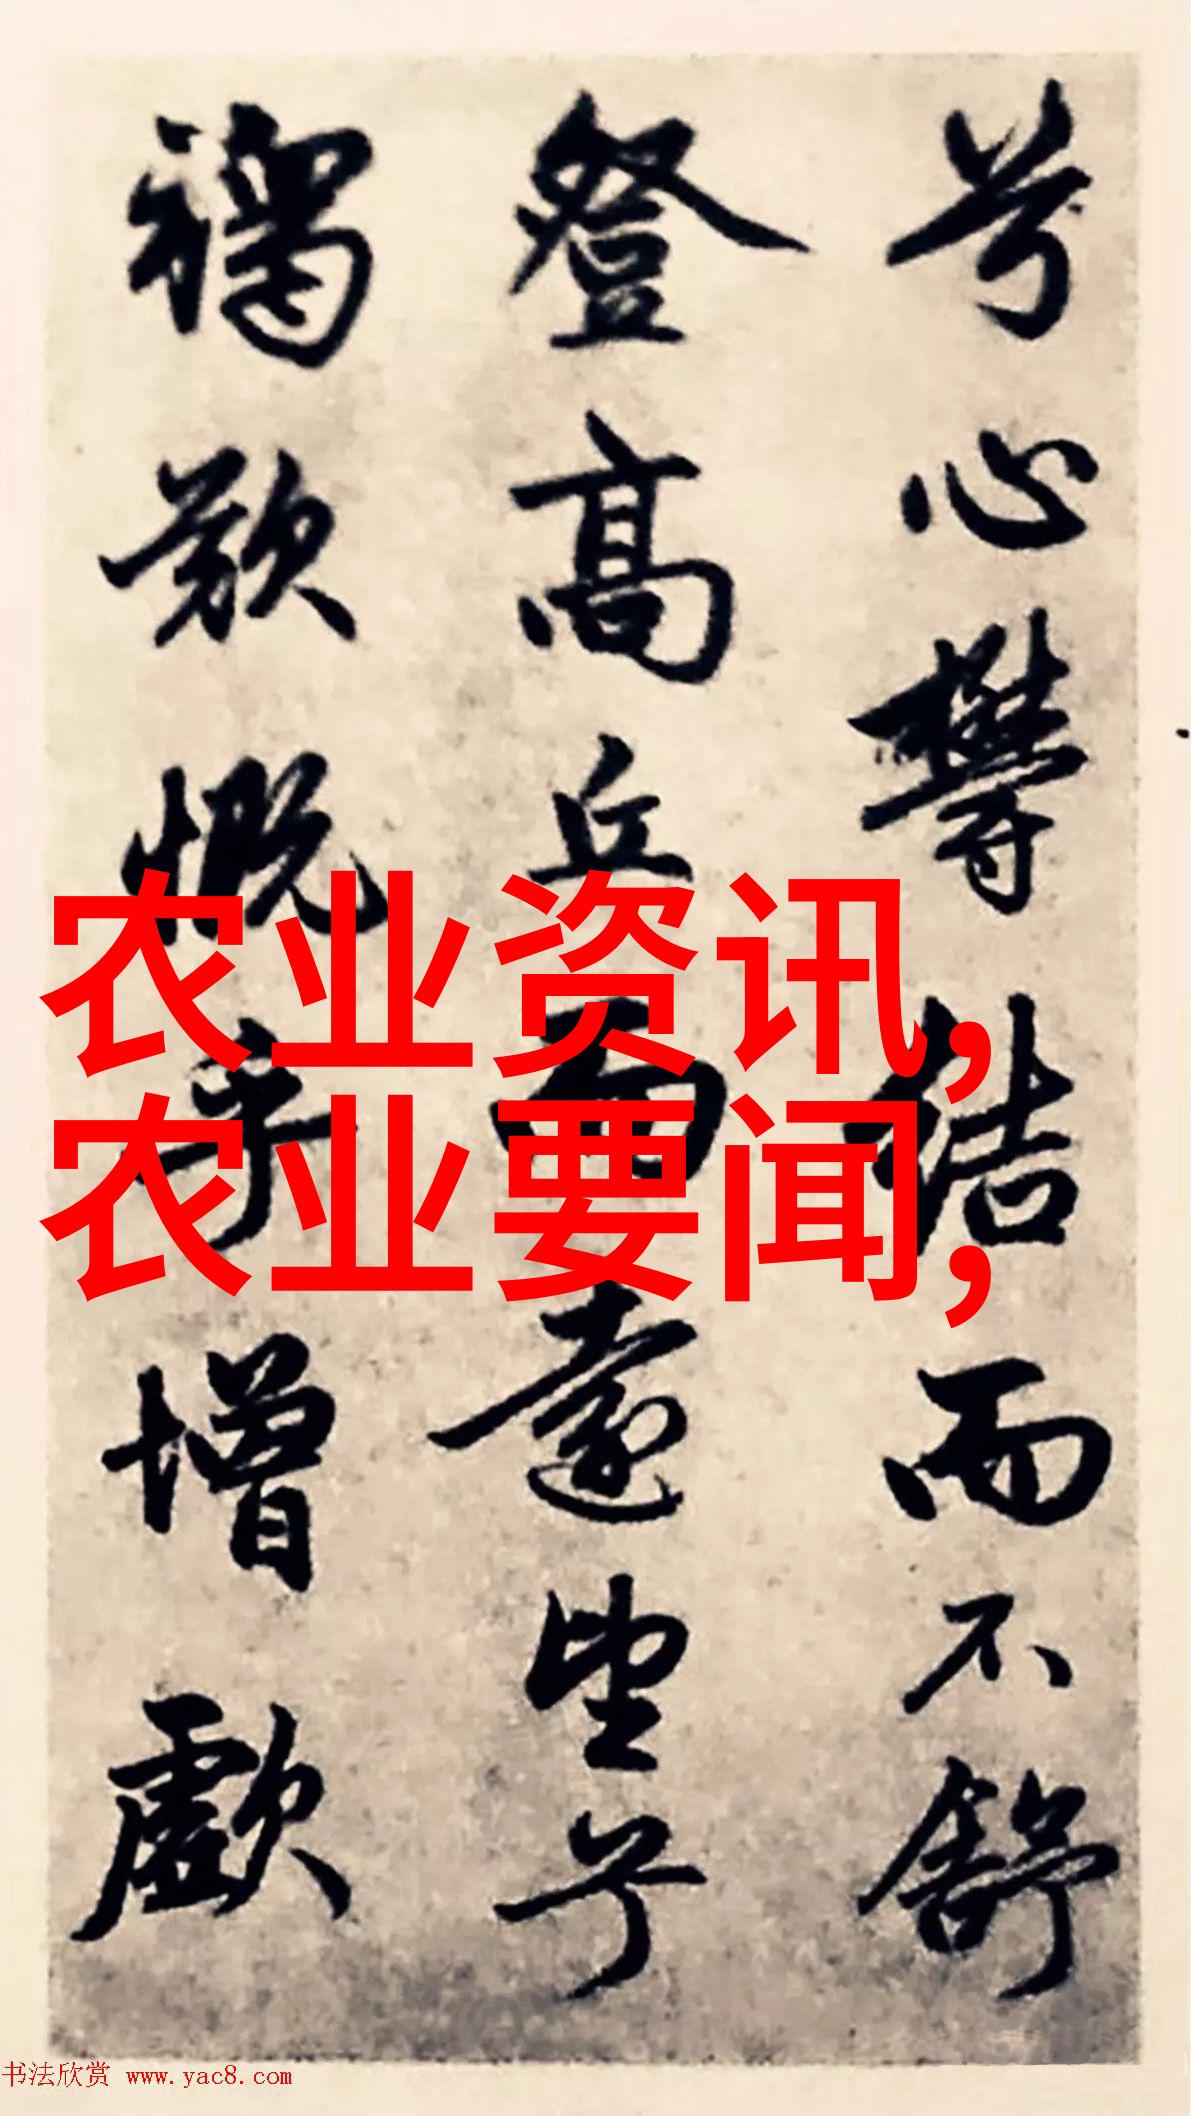 兮心欝结而不舒
登高丘而遠望兮
歎慨乎增歔
农业资讯,
农业要闻,
书法欣赏 www.yac8.com